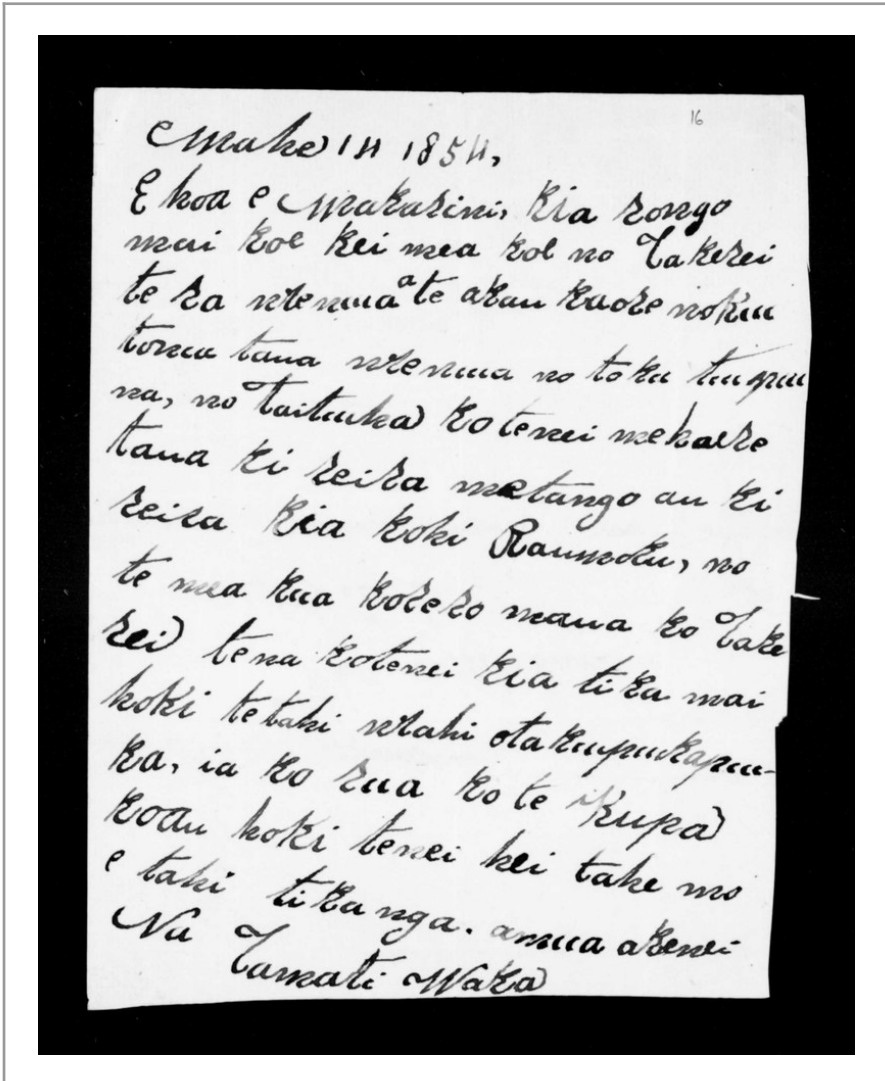 16
Maehe 14 1854,
E hoa e Makarini, kia rongo
mai koe kei mea koe no Takerei
te ra whenua a te arau kaore nokuu
tonu taua whenua no toku tuupuu
na, no Taituha) ko tenei mehaere
taua ki reira metango au ki
reira kia koki Raumoku, no
te mea kua korero maua ko Take
rei) tena kotenei kia tika mai
hoki tetahi whahi otakupukapuu-
ka, ia ko rua ko te Kupa)
koau hoki tenei hei take mo
e tahi tikanga. amua akenei
Na
Tamati Waka)